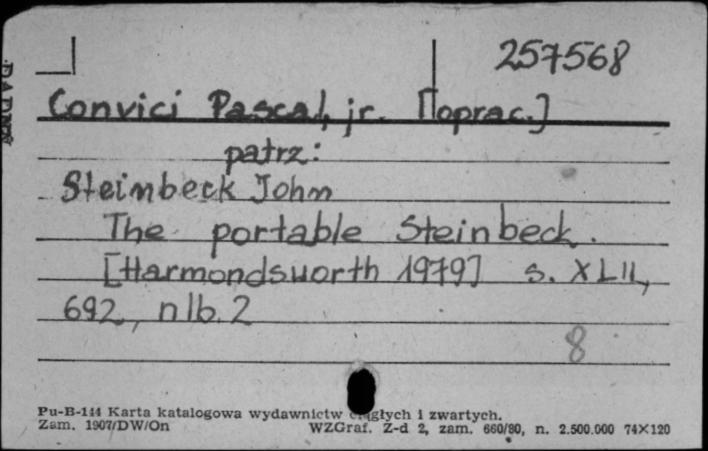 257568
Convici Pascal, jr. [oprac.]
patrz:
Steinbeck John
The portable Steinbeck.
[Harmondsworth 1979] s. XLII,
692, nlb. 2
8
Pu-B-144 Karta katalogowa wydawnictw ciągłych i zwartych.
Zam. 1907/DW/On WZGraf. Z-d 2, zam. 660/80, n. 2.500.000 74×120